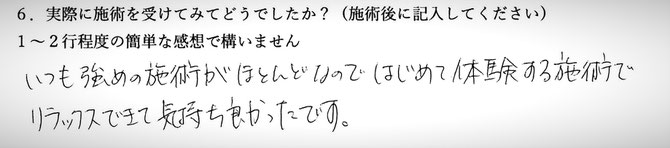 6．実際に施術を受けてみてどうでしたか？（施術後に記入してください）
1～2行程度の簡単な感想で構いません
いつも強めの施術がほとんどなので はじめて体験する施術で
リラックスできて気持ち良かったです。